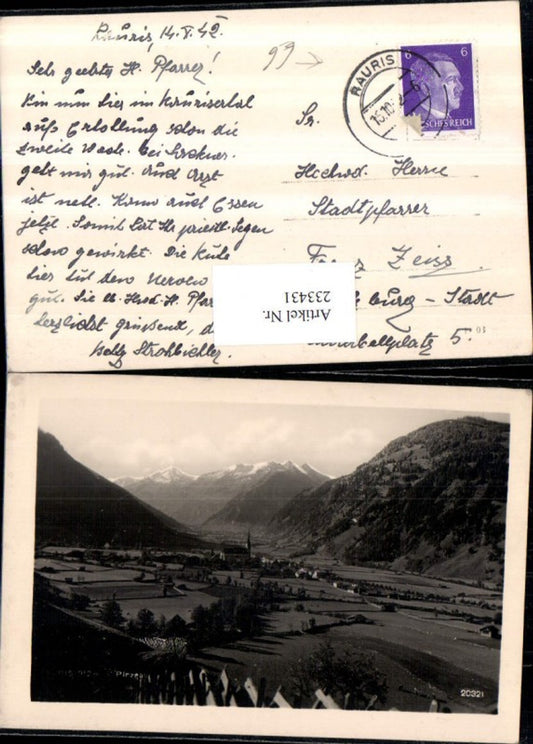 Rauris, 14. X. 42.
Sehr geehrter H. Pfarrer!
Bin nun hier im Raurisertal
auf Erhollung schon die
zweite Woche. bei Lackner.
geht mir gut. Und Arzt
ist nett. Kann auch Essen
jetzt. Somit hat Ihr priestl. Segen
schon gewirkt. Die Ruhe
hier tut den Nerven
gut. Sie
herzlichst grüssend,
Betty Strohbichler.
99
RAURIS
15.10.
6
6
SCHES REICH
Sr.
Hochw. Herrn
Stadtpfarrer
Franz Zeiss.
burg - Stadt
platz 5.
Artikel Nr.
233431
20321